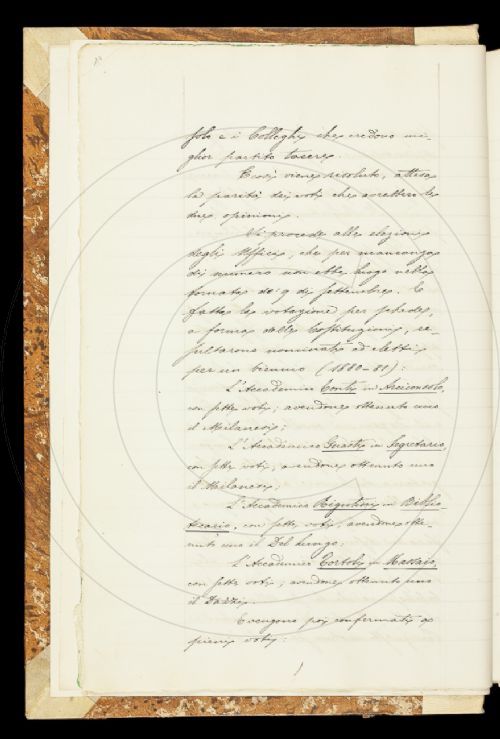 solo e i Colleghi che credono mi-
glior partito tacere.
Così viene risoluto, attesa
la parità dei voti che avrebbero le
due opinioni.
Si procede alla elezione
degli Uffici, che per mancanza
di numero non ebbe luogo nella
tornata de' 9 di settembre. E
fatta la votazione per schede,
a forma delle Costituzioni, re-
sultarono nominati ed eletti
per un biennio (1880-81):
L'Accademico Conti in Arciconsolo,
con sette voti; avendone ottenuto uno
il Milanesi;
L'Accademico Guasti in Segretario,
con sette voti, avendone ottenuto uno
il Milanesi;
L'Accademico Rigutini in Biblio-
tecario, con sette voti, avendone otte-
nuto uno il Del Lungo;
L'Accademico Tortoli in Massaio,
con sette voti; avendone ottenuto uno
il Dazzi.
Vengono poi confermati a
pieni voti: